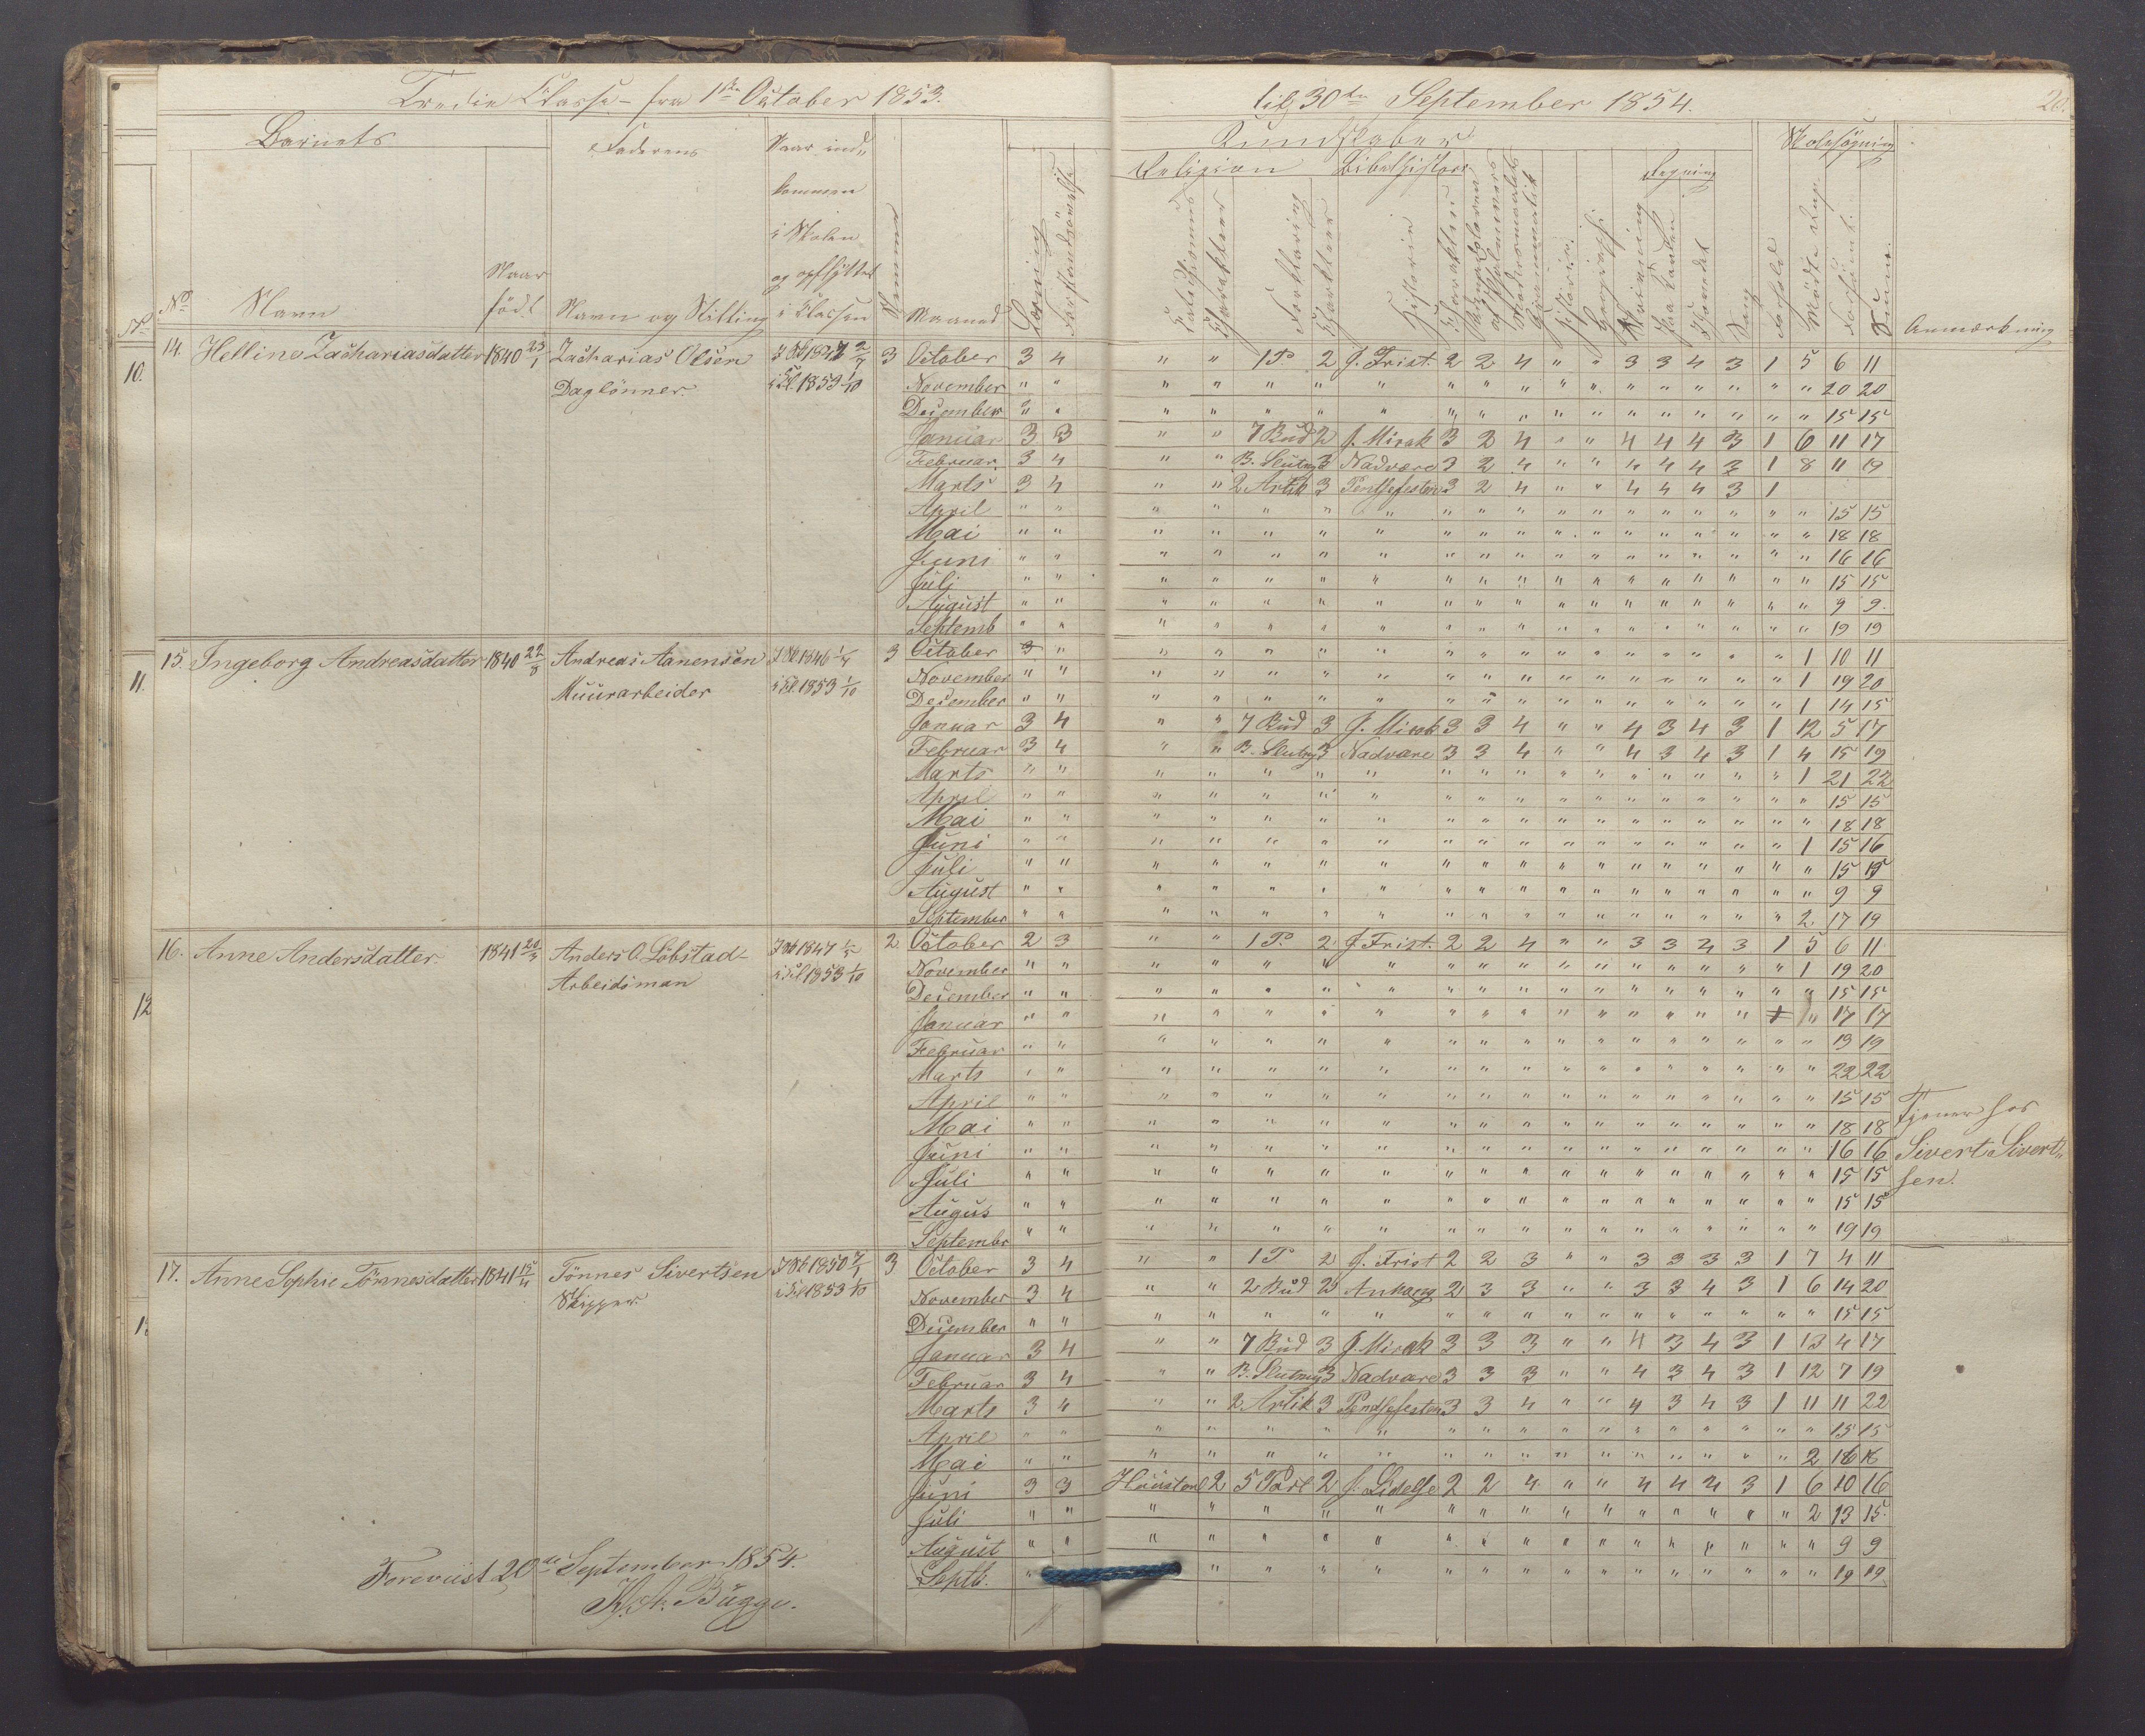 Tredie Classe fra 1ste October 1853. til 30te September 1854.
Barnets Faderens Naar ind-
kommen
i Skolen
og opflyttet
i Classen
No Navn Naar født Navn og Stilling Nummer Maaned Læsning Forstandsøvelse
Kundskaber Skolesøgning
Religion Bibelhistorie Regning
Charakteer Forklaring Charakteer Historie Grammatik Historie Geografi Skrivning Sang Forhold Mødte Forsømt Summa Anmærkning
14. Helline Zachariasdatter 1840 23/1 Zacharias Olsen 3 October 3 4 " " 1 P 2 J. Frist. 2 2 4 " " 3 3 4 3 1 5 6 11
10. Daglönner. i Cl. 1853 1/10 November " " " " " " " " " " " " " " " " " " 20 20
December " " " " " " " " " " " " " " " " " " 15 15
Januar 3 3 " " 7 Bud 2 J. Mirak 3 2 4 " " 4 4 4 3 1 6 11 17
Februar 3 4 " " B. Slutng 3 Nadvære 3 2 4 " " 4 4 4 3 1 8 11 19
Marts 3 4 " " 2 Artik 3 Pentsefesten 3 2 4 " " 4 4 4 3 1
April " " " " " " " " " " " " " " " " " " 15 15
Mai " " " " " " " " " " " " " " " " " " 18 18
Juni " " " " " " " " " " " " " " " " " " 16 16
Juli " " " " " " " " " " " " " " " " " " 15 15
August " " " " " " " " " " " " " " " " " " 9 9.
Septemb " " " " " " " " " " " " " " " " " " 19 19
15. Ingeborg Andreasdatter 1840 22/8 Andreas Aanensen 3 October " " " " " " " " " " " " " " " " 1 10 11
11. Muurarbeider i Cl. 1853 1/10 November " " " " " " " " " " " " " " " " " 1 19 20
December " " " " " " " " " " " " " " " " " 1 14 15
Januar 3 4 " " 7 Bud 3 J. Mirak 3 3 4 " " 4 3 4 3 1 12 5 17
Februar 3 4 " " B. Slutng 3 Nadvære 3 3 4 " " 4 3 4 3 1 4 15 19
Marts " " " " " " " " " " " " " " " " " 1 21 22
April " " " " " " " " " " " " " " " " " " 15 15
Mai " " " " " " " " " " " " " " " " " " 18 18
Juni " " " " " " " " " " " " " " " " " 1 15 16
Juli " " " " " " " " " " " " " " " " " " 15 15
August " " " " " " " " " " " " " " " " " " 9 9
September " " " " " " " " " " " " " " " " " 2 17 19
16. Anne Andersdatter. 1841 Anders O. Löbstad 2 October 2 3 " " 1 P. 2 J Frist. 2 2 4 " " 3 3 4 3 1 5 6 11
12 Arbeidsman i Cl 1853 1/10 November " " " " " " " " " " " " " " " " " 1 19 20
December " " " " " " " " " " " " " " " " " " 15 15
Januar " " " " " " " " " " " " " " " " " 17 17
Februar " " " " " " " " " " " " " " " " " " 19 19
Marts " " " " " " " " " " " " " " " " " " 22 22
April " " " " " " " " " " " " " " " " " " 15 15 Tjener hos
Mai " " " " " " " " " " " " " " " " " " 18 18
Juni " " " " " " " " " " " " " " " " " " 16 16 Sivert Sivert-
Juli " " " " " " " " " " " " " " " " " " 15 15 sen.
Augus " " " " " " " " " " " " " " " " " " 15 15
Septembr " " " " " " " " " " " " " " " " " " 19 19
17. Anne Sophie Tönnesdatter 1841 15/4 Tönnes Sivertsen 3 October 3 4 " " 1 P 2 J. Frist 2 2 3 " " 3 3 3 3 1 7 4 11
Skipper i Cl 1853 1/10 November 3 4 " " 2 Bud 2 2 3 3 " " 3 3 4 3 1 6 14 20
December " " " " " " " " " " " " " " " " " " 15 15
Januar 3 4 " " 7 Bud 3 J. Mirak 3 3 3 " " 4 3 4 3 1 13 4 17
Februar 3 4 " " B. Slutng 3 Nadvære 3 3 3 " " 4 3 4 3 1 12 7 19
Marts 3 4 " " 2 Artik 3 Pentsefesten 3 3 4 " " 4 3 4 3 1 11 11 22
April " " " " " " " " " " " " " " " " " " 15 15
Mai " " " " " " " " " " " " " " " " " 2 16
Juni 3 3 2 5 Part 2 J. Lidelse 2 2 4 " " 4 4 4 3 1 6 10 16
Juli " " " " " " " " " " " " " " " " " 2 13 15
August " " " " " " " " " " " " " " " " " " 9 9
Septb. " " " " " " " " " " " " " " " " " 19 19
Foreviist 20de September 1854.
Bugge.